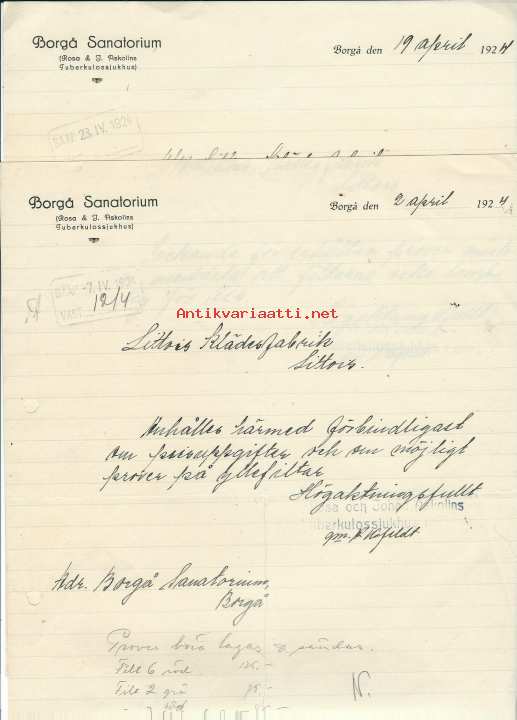 Borgå Sanatorium
(Rosa & J. Askolins
Tuberkulossjukhus)
Borgå den 19 april 1924
23.IV.1924
Borgå Sanatorium
(Rosa & J. Askolins
Tuberkulossjukhus)
Borgå den 2 april 1924
-7.IV.1924
12/4
Antikvariaatti.net
Littois Klädesfabrik
Littois.
Anhåller härmed förbindligast
om prisuppgifter och om möjligt
prover på yllefiltar
Högaktningsfullt
Rosa och Johan Askolins
Tuberkulossjukhus
Adr. Borgå Sanatorium,
Borgå
Prover böra tagas o sändas.
Filt 6 röd
Filt 2 grå